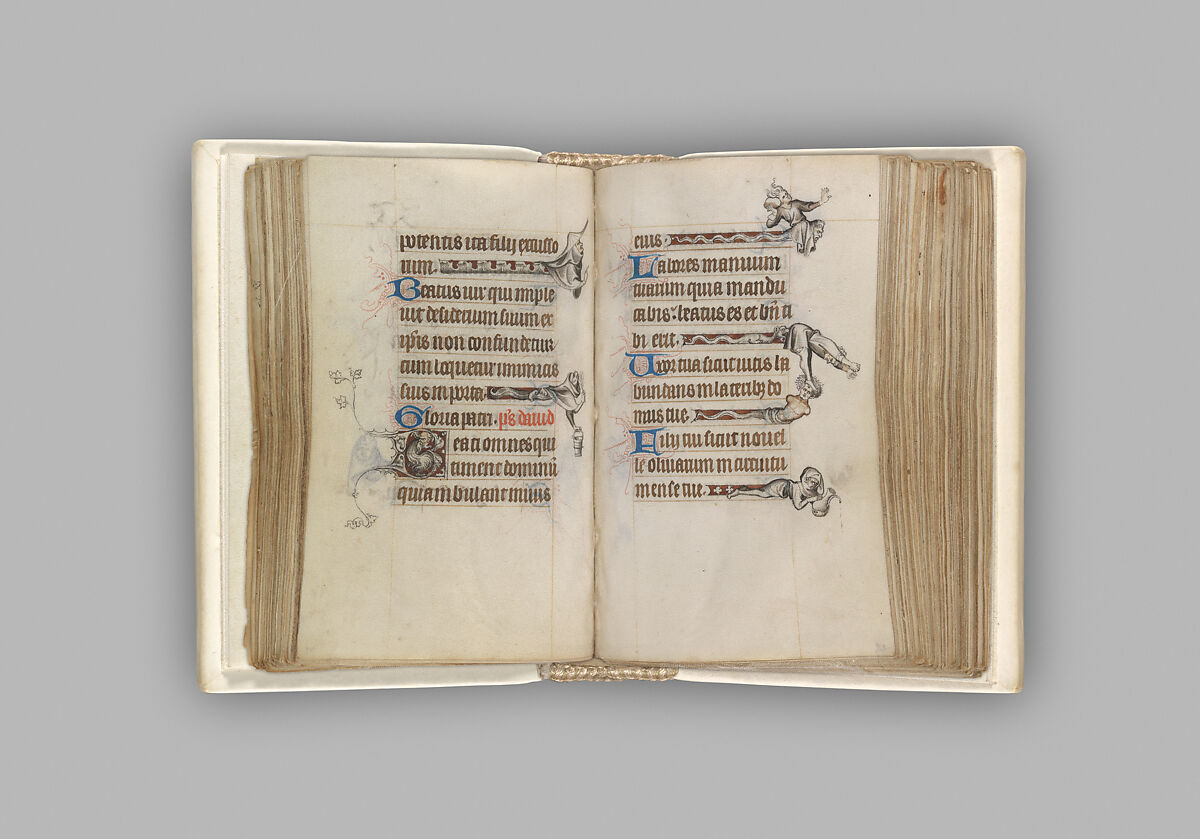 potentis ita filij excusso
rum.
Beatus uir qui imple
uit desiderium suum ex
ip̄is non confundetur
cum loquetur inimicis
suis in porta.
Gloria patri. p̄s dauid
Beati omnes qui
timent dominū
qui ambulant in uiis
eius.
Labores manuum
tuarum quia mandu
cabis: beatus es et bn̄ ti
bi erit.
Uxor tua sicut uitis ha
bundans in lateribꝫ do
mus tue.
Filij tui sicut nouel
le oliuarum in circuitu
mense tue.